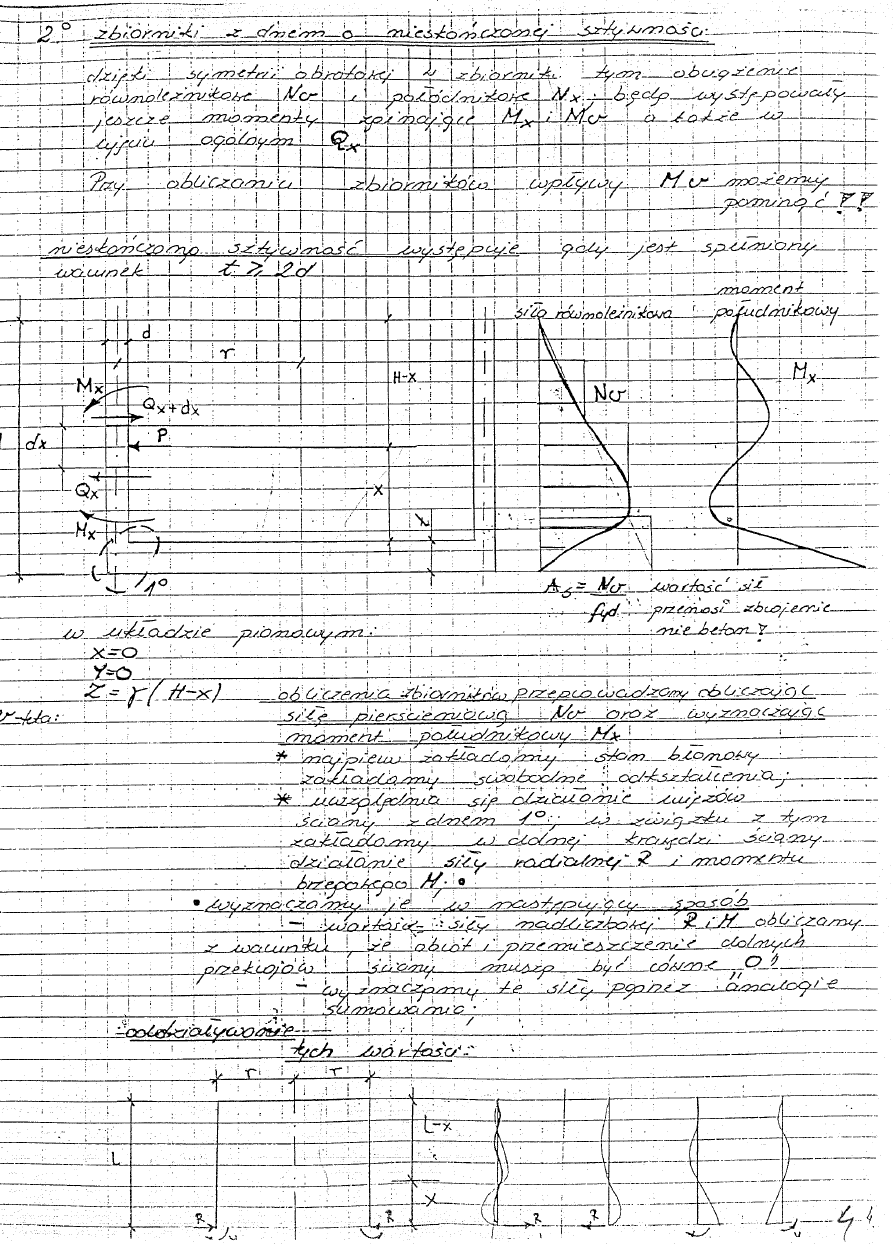 2° zbiorniki z dnem o nieskończonej sztywności:
dzięki symetrii obrotowej w zbiorniku tym obciążenie
równoleżnikowe Nυ i południkowe Nx; będą występowały
jeszcze momenty zginające Mx i Mυ a także w
ujęciu ogólnym Qx
Przy obliczaniu zbiorników wpływy Mυ możemy
pominąć??
nieskończona sztywność występuje gdy jest spełniony
warunek t ≥ 2d
moment
siła równoleżnikowa południkowy
d
r
Mx
Qx+dx
H-x
P
dx
Qx
x
Mx
t
1°
Nυ
Mx
As = Nυ wartość sił
fyd przenosi zbrojenie
nie beton?
w układzie pionowym:
X=0
Y=0
Z = γ(H-x) obliczenia zbiorników przeprowadzamy obliczając
siłę pierścieniową Nυ oraz wyznaczając
moment południkowy Mx
* najpierw zakładamy stan błonowy
zakładamy swobodne odkształcenia;
* uwzględnia się działanie więzów
ściany z dnem 1°; w związku z tym
zakładamy w dolnej krawędzi ściany
działanie siły radialnej R i momentu
brzegowego M;
• wyznaczamy je w następujący sposób
- wartość siły nadliczbowej R i M obliczamy
z warunku, że obrót i przemieszczenie dolnych
przekrojów ściany muszą być równe „0"
- wyznaczamy te siły poprzez „analogie
sumowania;
-oddziaływanie
tych wartości:
r r
L
L-x
x
R
R
R
R
4